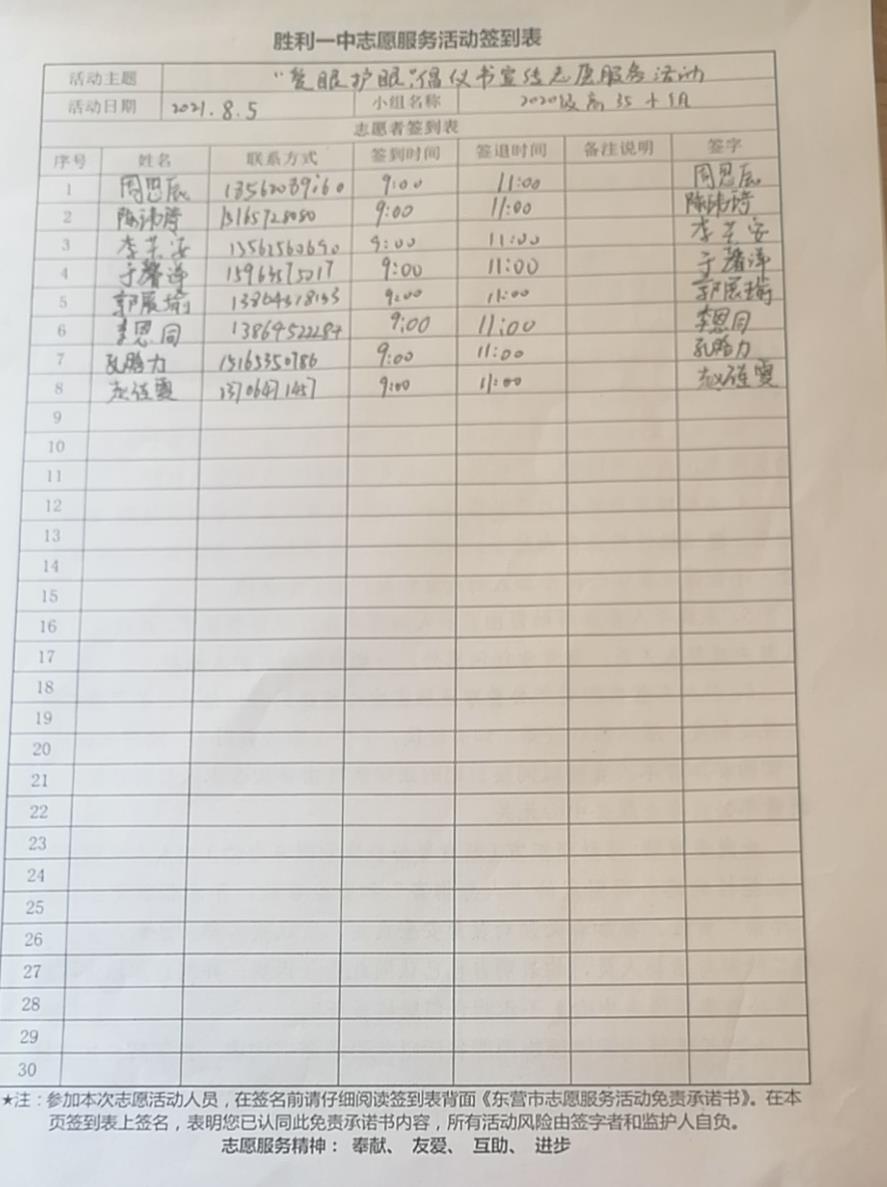 胜利一中志愿服务活动签到表
活动主题 “爱眼护眼”倡仪书宣传志愿服务活动
活动日期 2021.8.5 小组名称 2020级高35小组
志愿者签到表
序号 姓名 联系方式 签到时间 签退时间 备注说明 签字
1 周思辰 9:00 11:00 周思辰
2 15165728080 9:00 11:00
3 13562560690 9:00 11:00
4 于馨洋 9:00 11:00 于馨洋
5 郭展瑜 9:00 11:00 郭展瑜
6 李恩同 13864522284 9:00 11:00 李恩同
7 孔腾力 15165350786 9:00 11:00 孔腾力
8 13706471457 9:00 11:00
9
10
11
12
13
14
15
16
17
18
19
20
21
22
23
24
25
26
27
28
29
30
★注：参加本次志愿活动人员，在签名前请仔细阅读签到表背面《东营市志愿服务活动免责承诺书》。在本
页签到表上签名，表明您已认同此免责承诺书内容，所有活动风险由签字者和监护人自负。
志愿服务精神： 奉献、 友爱、 互助、 进步